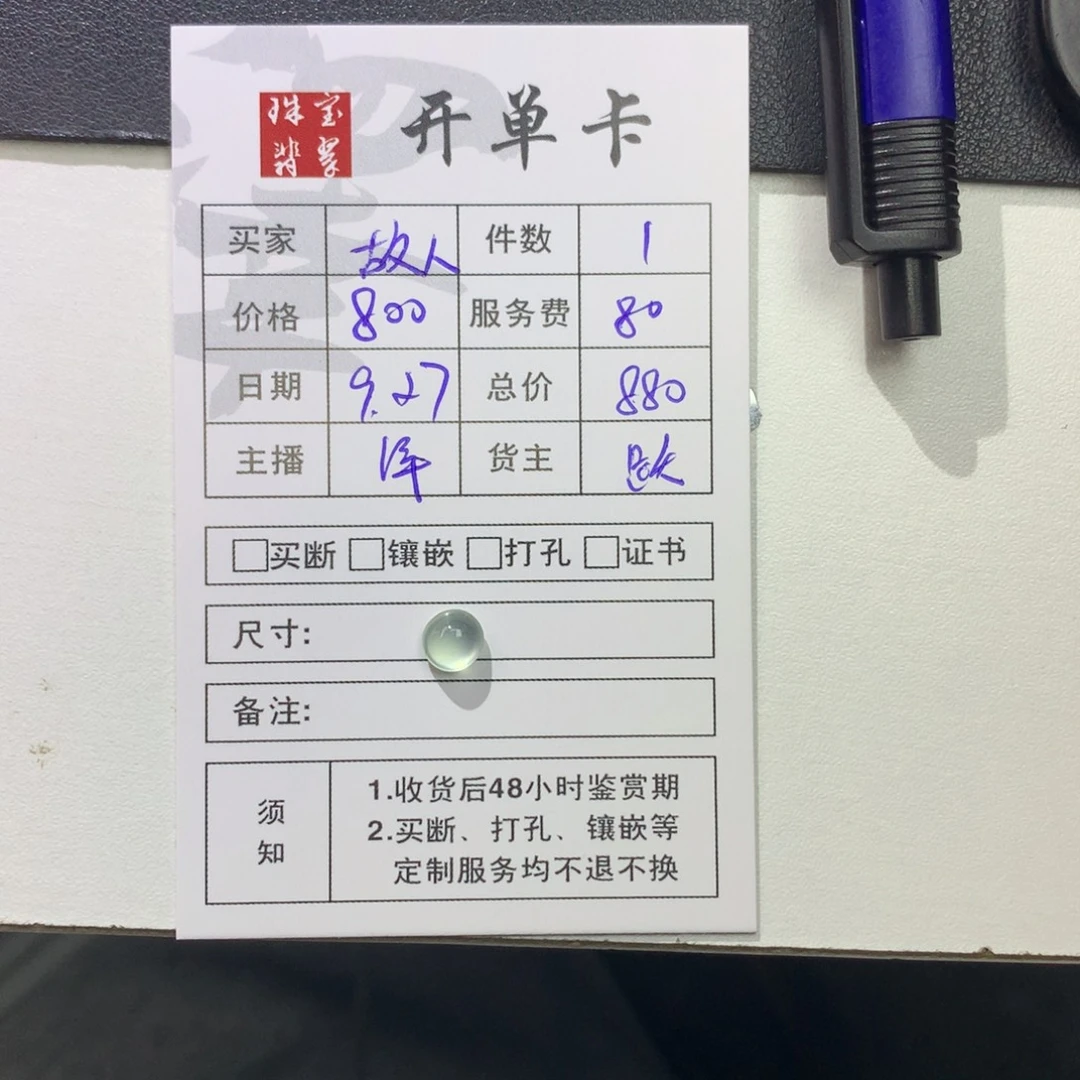 珠宝
翡翠
开单卡
买家 故人 件数 1
价格 800 服务费 80
日期 9.27 总价 880
主播 泽 货主
□买断 □镶嵌 □打孔 □证书
尺寸:
备注:
须知
1.收货后48小时鉴赏期
2.买断、打孔、镶嵌等
定制服务均不退不换